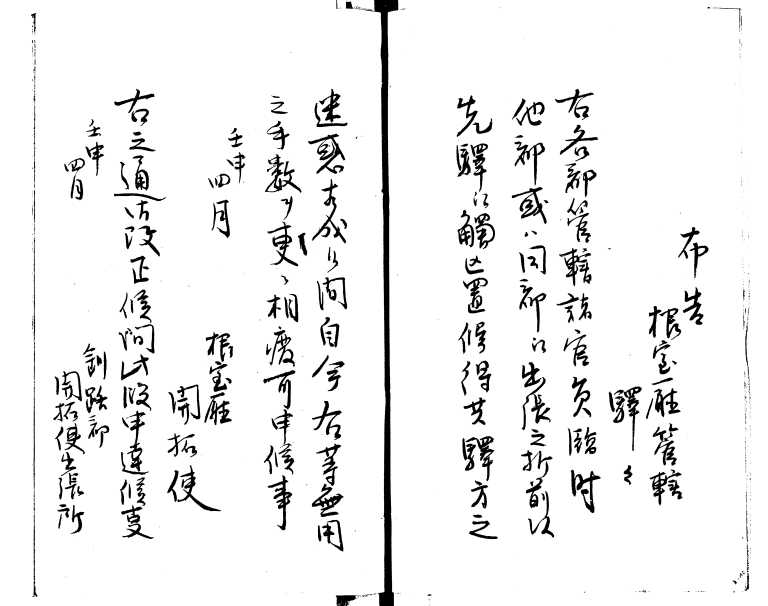 布告
根室庁管轄
驛々
右各郡管轄詰官員臨時
他郡或ハ同郡江出張之折前以
先驛江觸置候得共驛方之
迷惑相成候間自今右等無用
之手数ヲ更ニ相廢可申候事
壬申
四月
根室庁
開拓使
右之通御改正候間此段申達候事
壬申
四月
釧路郡
開拓使出張所